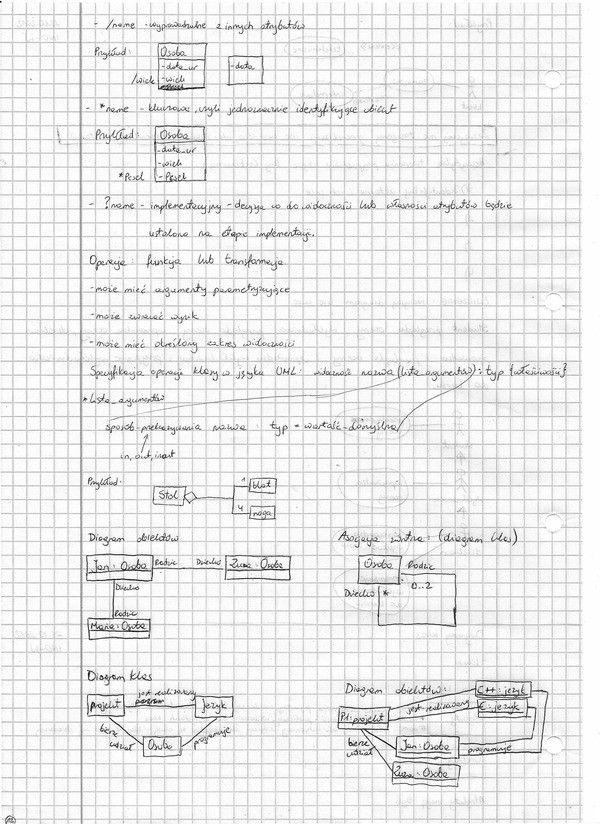 - /name - wyprowadzalne z innych atrybutów
Przykład:
Osoba
- data_ur
/wiek - wiek
- data
- *name - kluczowe, czyli jednoznacznie identyfikujące obiekt
Przykład:
Osoba
- data_ur
- wiek
*Pesel - Pesel
- ?name - implementacyjny - decyzja co do widoczności lub własności atrybutów będzie
ustalona na etapie implementacji.
Operacja: funkcja lub transformacja
- może mieć argumenty parametryzujące
- może zwracać wynik
- może mieć określony zakres widoczności
Specyfikacja operacji klasy w języku UML: widoczność nazwa (lista_argumentów): typ {właściwości}
* Lista_argumentów
sposób-przekazywania nazwa : typ = wartość-domyślna
in, out, inout
Przykład:
Stół
1 blat
4 noga
Diagram obiektów
Jan: Osoba Rodzic Dziecko Zuza: Osoba
Dziecko
Rodzic
Maria: Osoba
Asocjacja zwrotna: (diagram klas)
Osoba Rodzic
0..2
Dziecko *
Diagram klas
projekt jest realizowany język
bierze udział
Osoba
programuje
Diagram obiektów:
C++: język
P1: projekt jest realizowany C: język
bierze udział
Jan: Osoba programuje
Zuza: Osoba